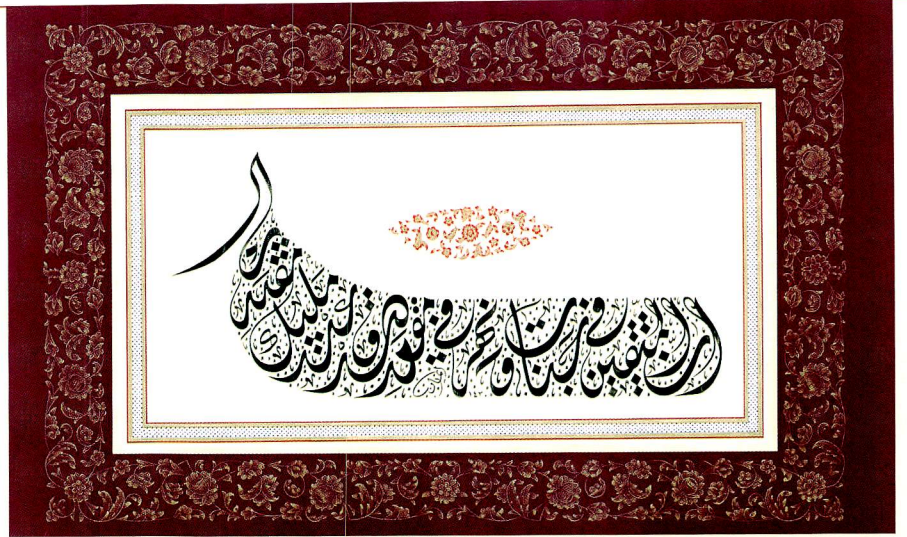 إن المتقين في جنات ونهر في مقعد صدق عند مليك مقتدر